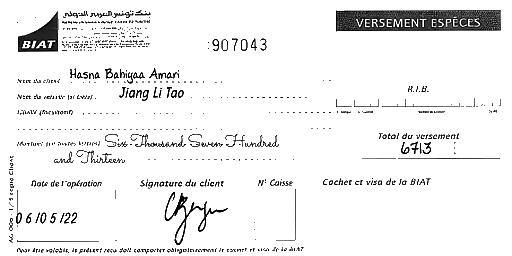 بنك تونس العربي الدولي
BIAT
907043
VERSEMENT ESPÈCES
Nom du client Hasna Bahiyaa Amari
Jiang Li Tao
R.I.B.
Montant (en toutes lettres) Six Thousand Seven Hundred
and Thirteen
Total du versement
6713
Date de l'opération
Signature du client
N° Caisse
Cachet et visa de la BIAT
06/05/22
Pour être valable, le présent reçu doit comporter obligatoirement le cachet et visa de la BIAT